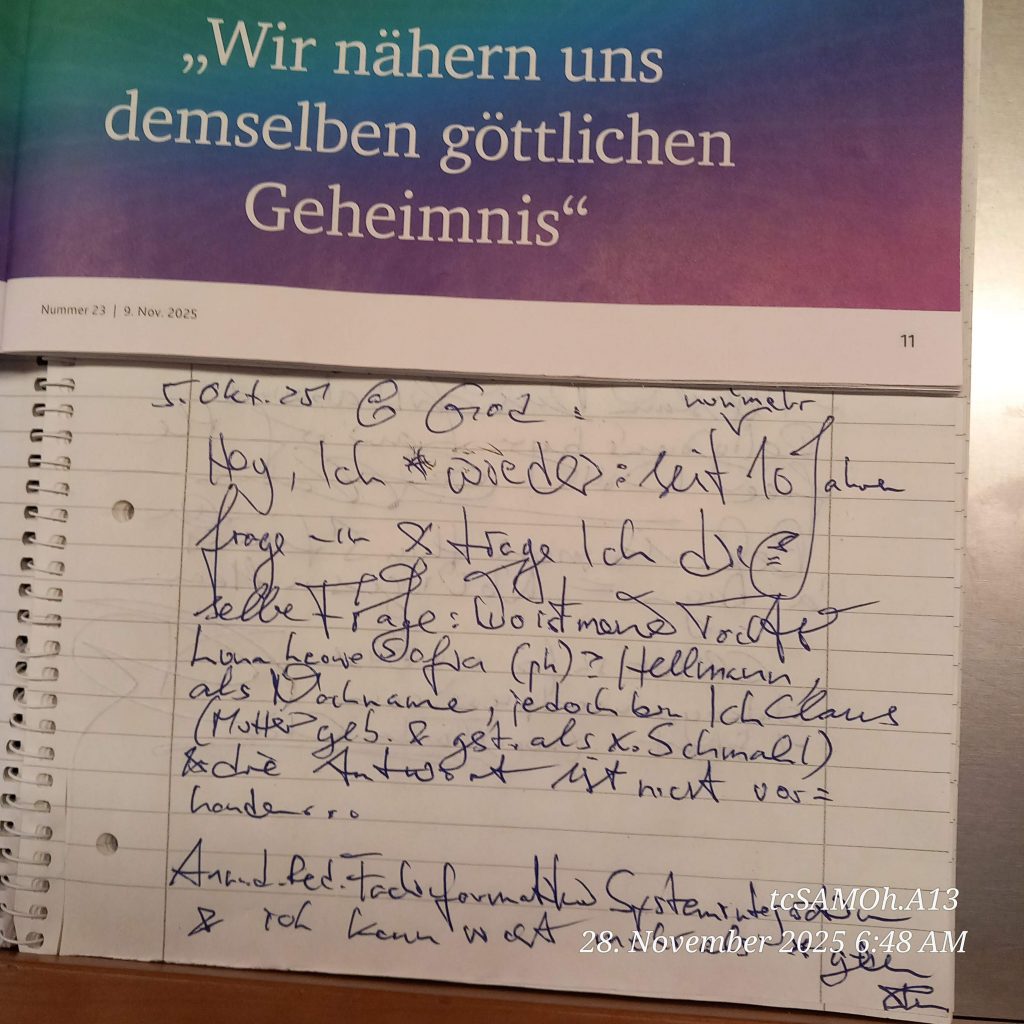 „Wir nähern uns
demselben göttlichen
Geheimnis“
Nummer 23 | 9. Nov. 2025
11
5. Okt. 25 @ God :
nunmehr
Hey, Ich wieder: seit 10 Jahren
frage & trage Ich die
selbe Frage: Wo ist meine Tochter
Luna Sofia (ph)? Hellmann,
als Nachname, jedoch bin Ich Claus
(Mutter geb. & gst. als x. Schmahl)
& die Antwort ist nicht vor=
handen...
Anm. d. Red. Fachinformatiker Systemintegration
& ich kann
tcSAMOh.A13
28. November 2025 6:48 AM